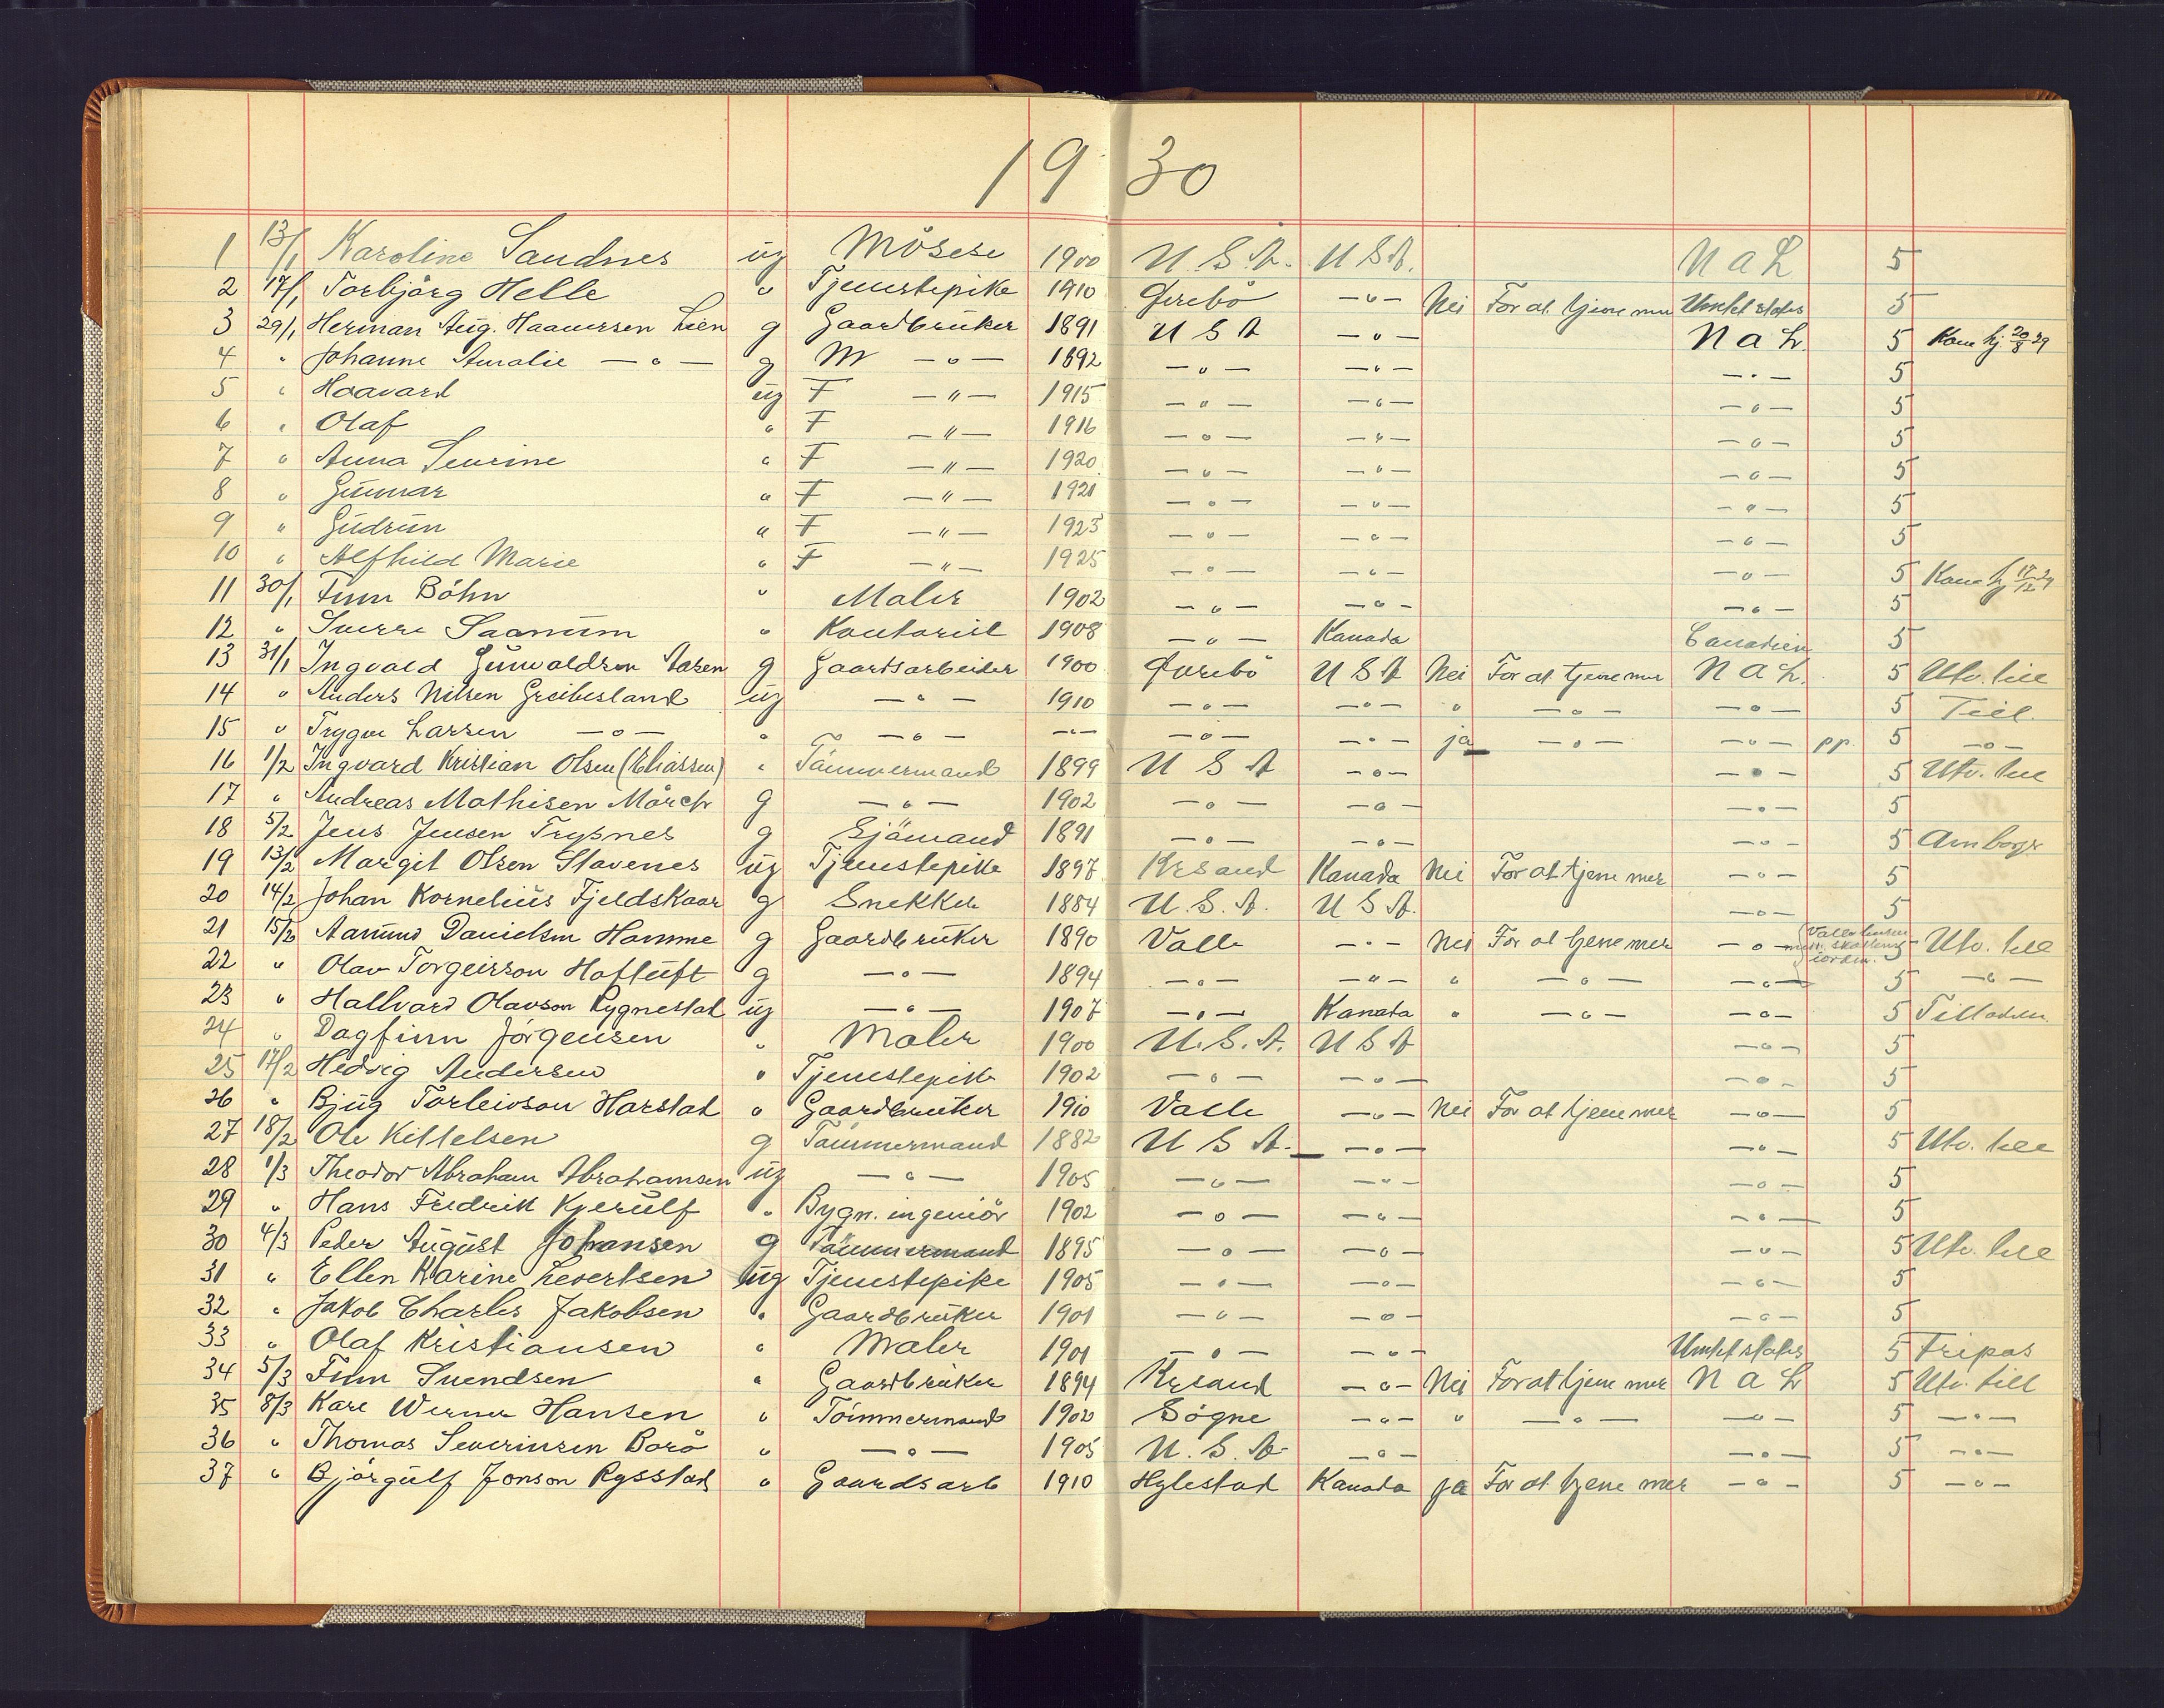 19 30
1 13/1 Karoline Sandnes ug Møsese 1900 U.S.A. U S A. N a L 5
2 17/1 Torbjørg Helle " Tjenestepike 1910 Øvrebø —"— Nei For at tjene mer Unitet states 5
3 29/1 Herman Aug. Haaversen Lien g Gaardbruker 1891 U S A —"— N a L. 5 Kom hj. 20/8 29
4 " Johanne Amalie —"— g M —"— 1892 —"— —"— —"— 5
5 " Haavard ug F —"— 1915 —"— —"— —"— 5
6 " Olaf " F —"— 1916 —"— —"— —"— 5
7 " Anna Severine " F —"— 1920 —"— —"— —"— 5
8 " Gunnar " F —"— 1921 —"— —"— —"— 5
9 " Gudrun " F —"— 1923 —"— —"— —"— 5
10 " Alfhild Marie " F —"— 1925 —"— —"— —"— 5 Kom hj 17/12 29
11 30/1 Finn Böhn " Maler 1902 —"— —"— —"— 5
12 " Sverre Saanum " Kontorist 1908 —"— Kanada Canadien 5
13 31/1 Ingvald Gunvaldsen Aasen g Gaardsarbeider 1900 Øvrebö U S A Nei For at tjene mer N a L. 5 Utv. till
14 " Anders Nilsen Greibesland ug —"— 1910 —"— —"— " —"— —"— 5 Till.
15 " Trygve Larsen —"— " —"— —"— —"— —"— ja —"— —"— pp 5 —"—
16 1/2 Ingvard Kristian Olsen (Eliassen) " Tømmermand 1899 U S A —"— —"— 5 Utv. till
17 " Andreas Mathisen Mörch g —"— 1902 —"— —"— —"— 5
18 5/2 Jens Jensen Trysnes g Sjømand 1891 —"— —"— —"— 5 Am borger
19 13/2 Margit Olsen Stavenes ug Tjenestepike 1897 Krsand Kanada Nei For at tjene mer —"— 5
20 14/2 Johan Kornelius Fjeldskaar g Snekker 1884 U.S.A. U S A. —"— 5
21 15/2 Aanund Danielsen Homme g Gaardbruker 1890 Valle —"— Nei For at tjene mer —"— 5 Utv. till
22 " Olav Torgeirson Hoftuft g —"— 1894 —"— —"— " —"— —"— 5 —"—
23 " Hallvard Olavson Rygnestad ug —"— 1907 —"— Kanada " —"— —"— 5 Tilladelse
24 " Dagfinn Jörgensen " Maler 1900 U.S.A. U S A —"— 5
25 17/2 Hedvig Andersen " Tjenestepike 1902 —"— —"— —"— 5
26 " Bjug Torleivson Harstad " Gaardbruker 1910 Valle —"— Nei For at tjene mer —"— 5
27 18/2 Ole Kittelsen g Tømmermand 1882 U S A. —"— —"— 5 Utv. till
28 1/3 Theodor Abraham Abrahamsen ug —"— 1905 —"— —"— —"— 5
29 " Hans Fredrik Kjerulf " Bygn. ingeniör 1902 —"— —"— —"— 5
30 4/3 Peder August Johansen g Tømmermand 1895 —"— —"— —"— 5 Utv. till
31 " Ellen Karine Levertsen ug Tjenestepike 1905 —"— —"— —"— 5
32 " Jakob Charles Jakobsen " Gaardbruker 1901 —"— —"— —"— 5
33 " Olaf Kristiansen " Maler 1901 —"— —"— Unitet states 5 Fripas
34 5/3 Finn Svendsen " Gaardbruker 1894 Krsand —"— Nei For at tjene mer N a L 5 Utv. till
35 8/3 Kare Werner Hansen " Tömmermand 1902 Sögne —"— " —"— —"— 5 —"—
36 " Thomas Severinsen Borø " —"— 1905 U.S.A. —"— —"— 5 —"—
37 " Bjørgulf Jonson Rysstad " Gaardsarb 1910 Hylestad Kanada ja For at tjene mer —"— 5 —"—